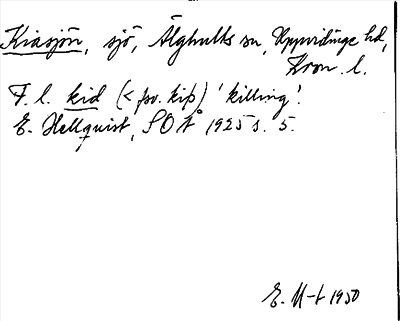 Kiasjön, sjö, Älghults sn, Uppvidinge hd,
Kron. l.
F. l. kid (< fsv. kiþ) 'killing'.
E. Hellquist, SOÅ 1925 s. 5.
E. M-t 1950